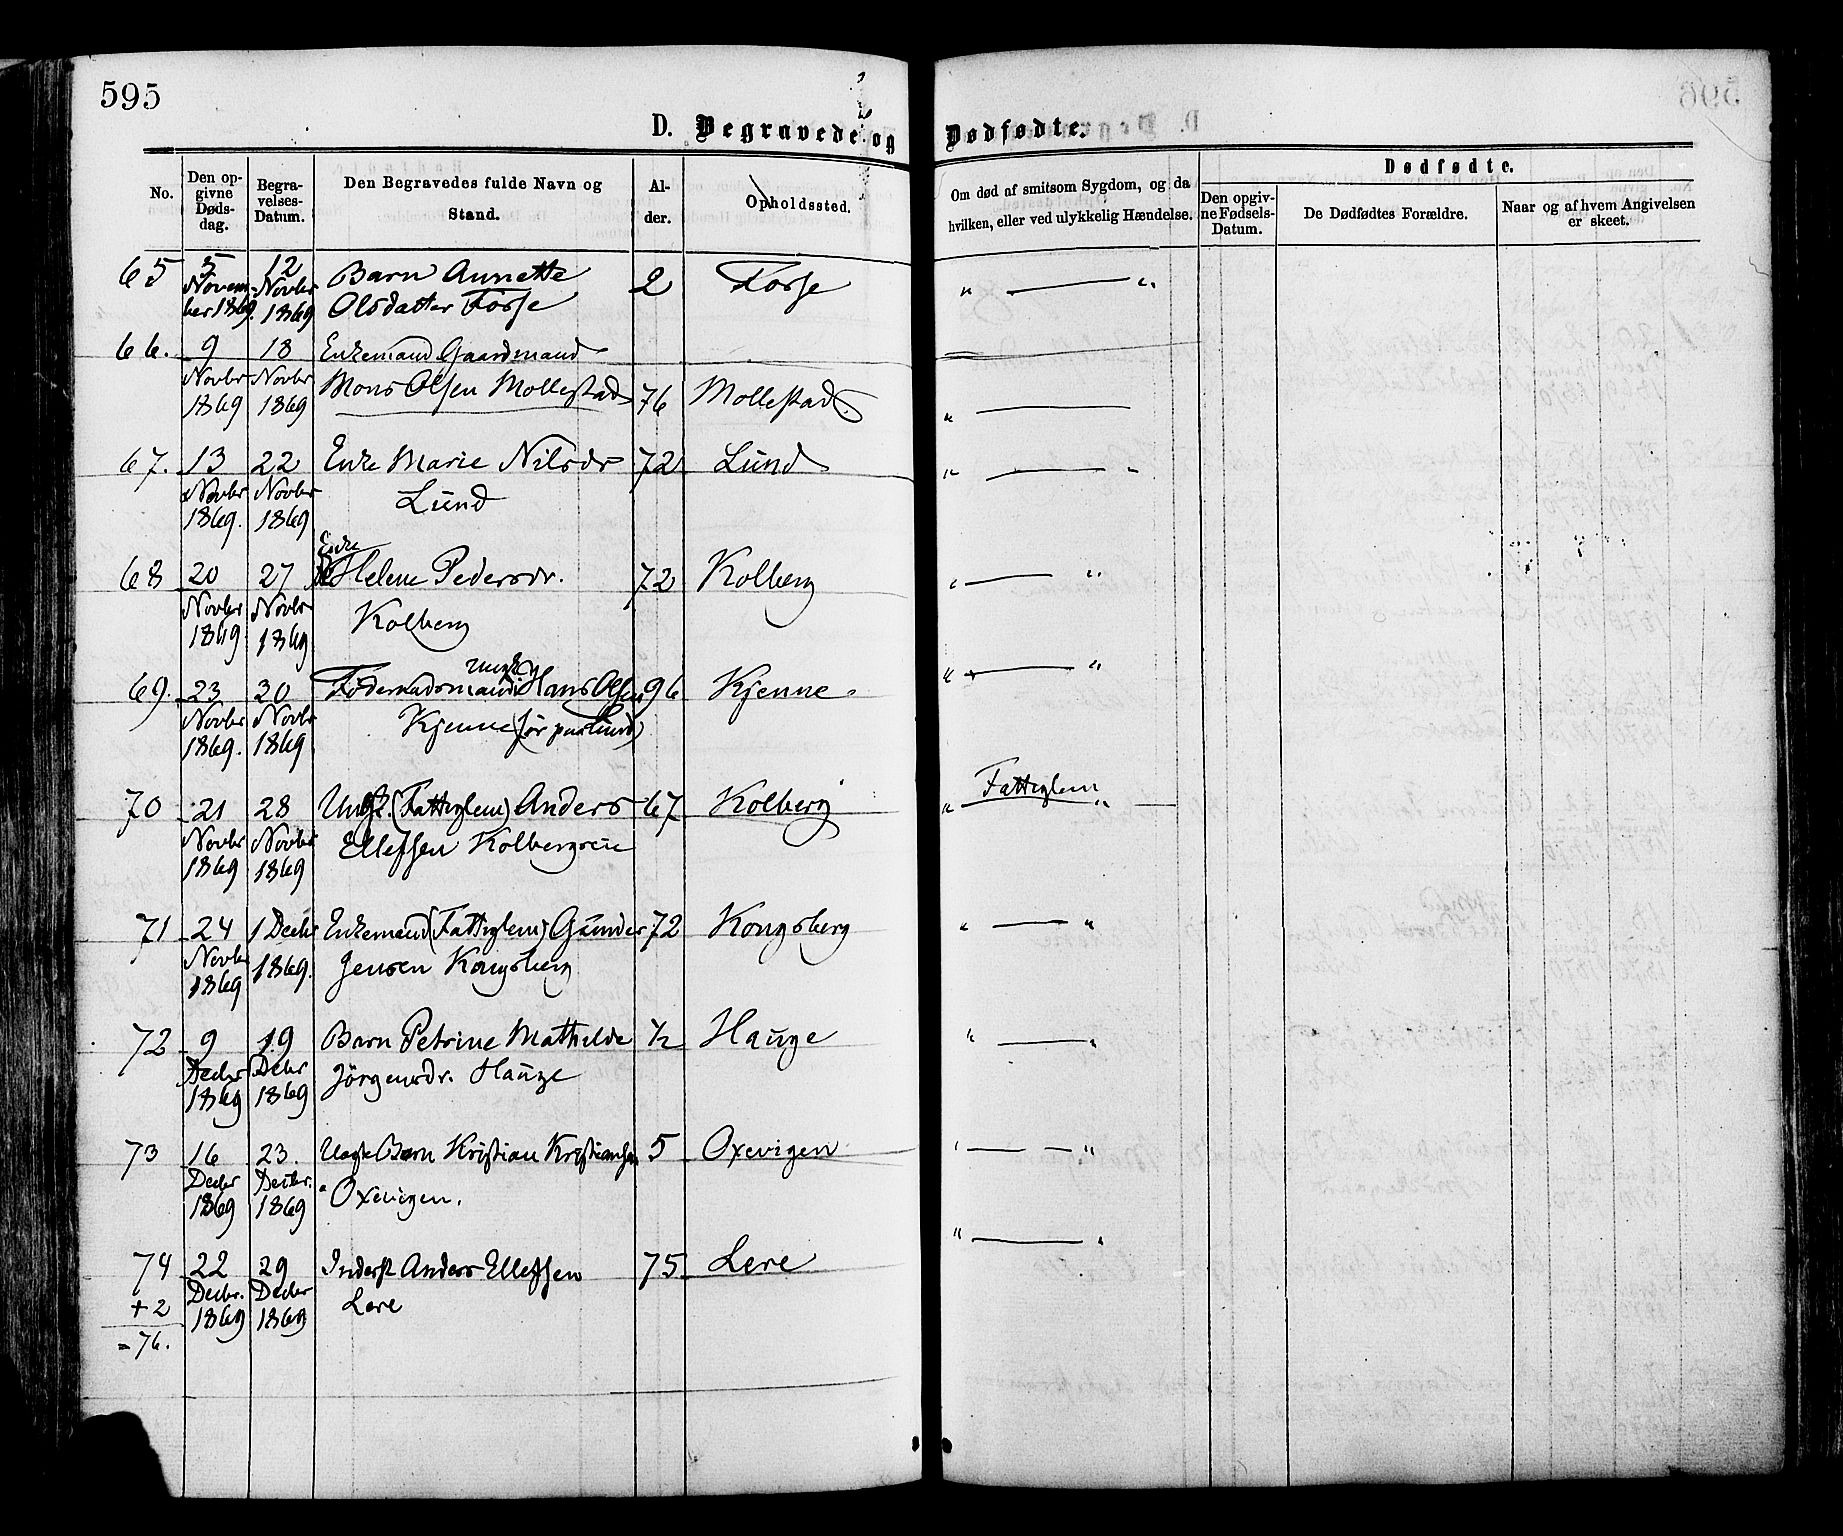 595
D. Begravede og Dødfødte.
No.
Den opgivne Dødsdag.
Begravelses-Datum.
Den Begravedes fulde Navn og Stand.
Alder.
Opholdssted.
Om død af smitsom Sygdom, og da hvilken, eller ved ulykkelig Hændelse.
Dødfødte.
Den opgivne Fødsels-Datum.
De Dødfødtes Forældre.
Naar og af hvem Angivelsen er skeet.
65 5 12 Barn Annette 2 Forse " — "
November 1869. Novbr 1869 Olsdatter Forse
66. 9 18 Enkemand Gaardmand
Novbr Novbr Mons Olsen Mollestad 76 Mollestad. " —
1869 1869
67. 13 22 Enke Marie Nilsdr 72 Lund " — "
Novbr Novbr Lund
1869. 1869
Enke
68 20 27 Helene Pedersdr. 72 Kolberg " — "
Novbr Novbr Kolberg
1869 1869
Ungk
69. 23 30 Föderaadsmand Hans Olsen 96 Kjenne " — "
Novbr Novbr Kjenne (för paa Lund)
1869. 1869
Fattiglem
70 21 28 Ungk. (Fattiglem) Anders 67 Kolberg " — " —
Novbr Novbr Ellefsen Kolbergseie
1869 1869
71 24 1 Decbr Enkemand (Fattiglem) Gunder 72 Kongsberg " — "
Novbr 1869. Jensen Kongsberg
1869
72 9 19 Barn Petrine Mathilde ½ Hauge " — "
Decbr Decbr Jörgensdr. Hauge
1869 1869
73 16 23. Uægte Barn Kristian Kristiansen 5 Oxevigen " — — "
Decbr Decbr. Oxevigen.
1869 1869
74 22 29 Inderst Anders Ellefsen 75 Lere " — "
+2 Decbr. Decbr Lere
1869 1869
=76.